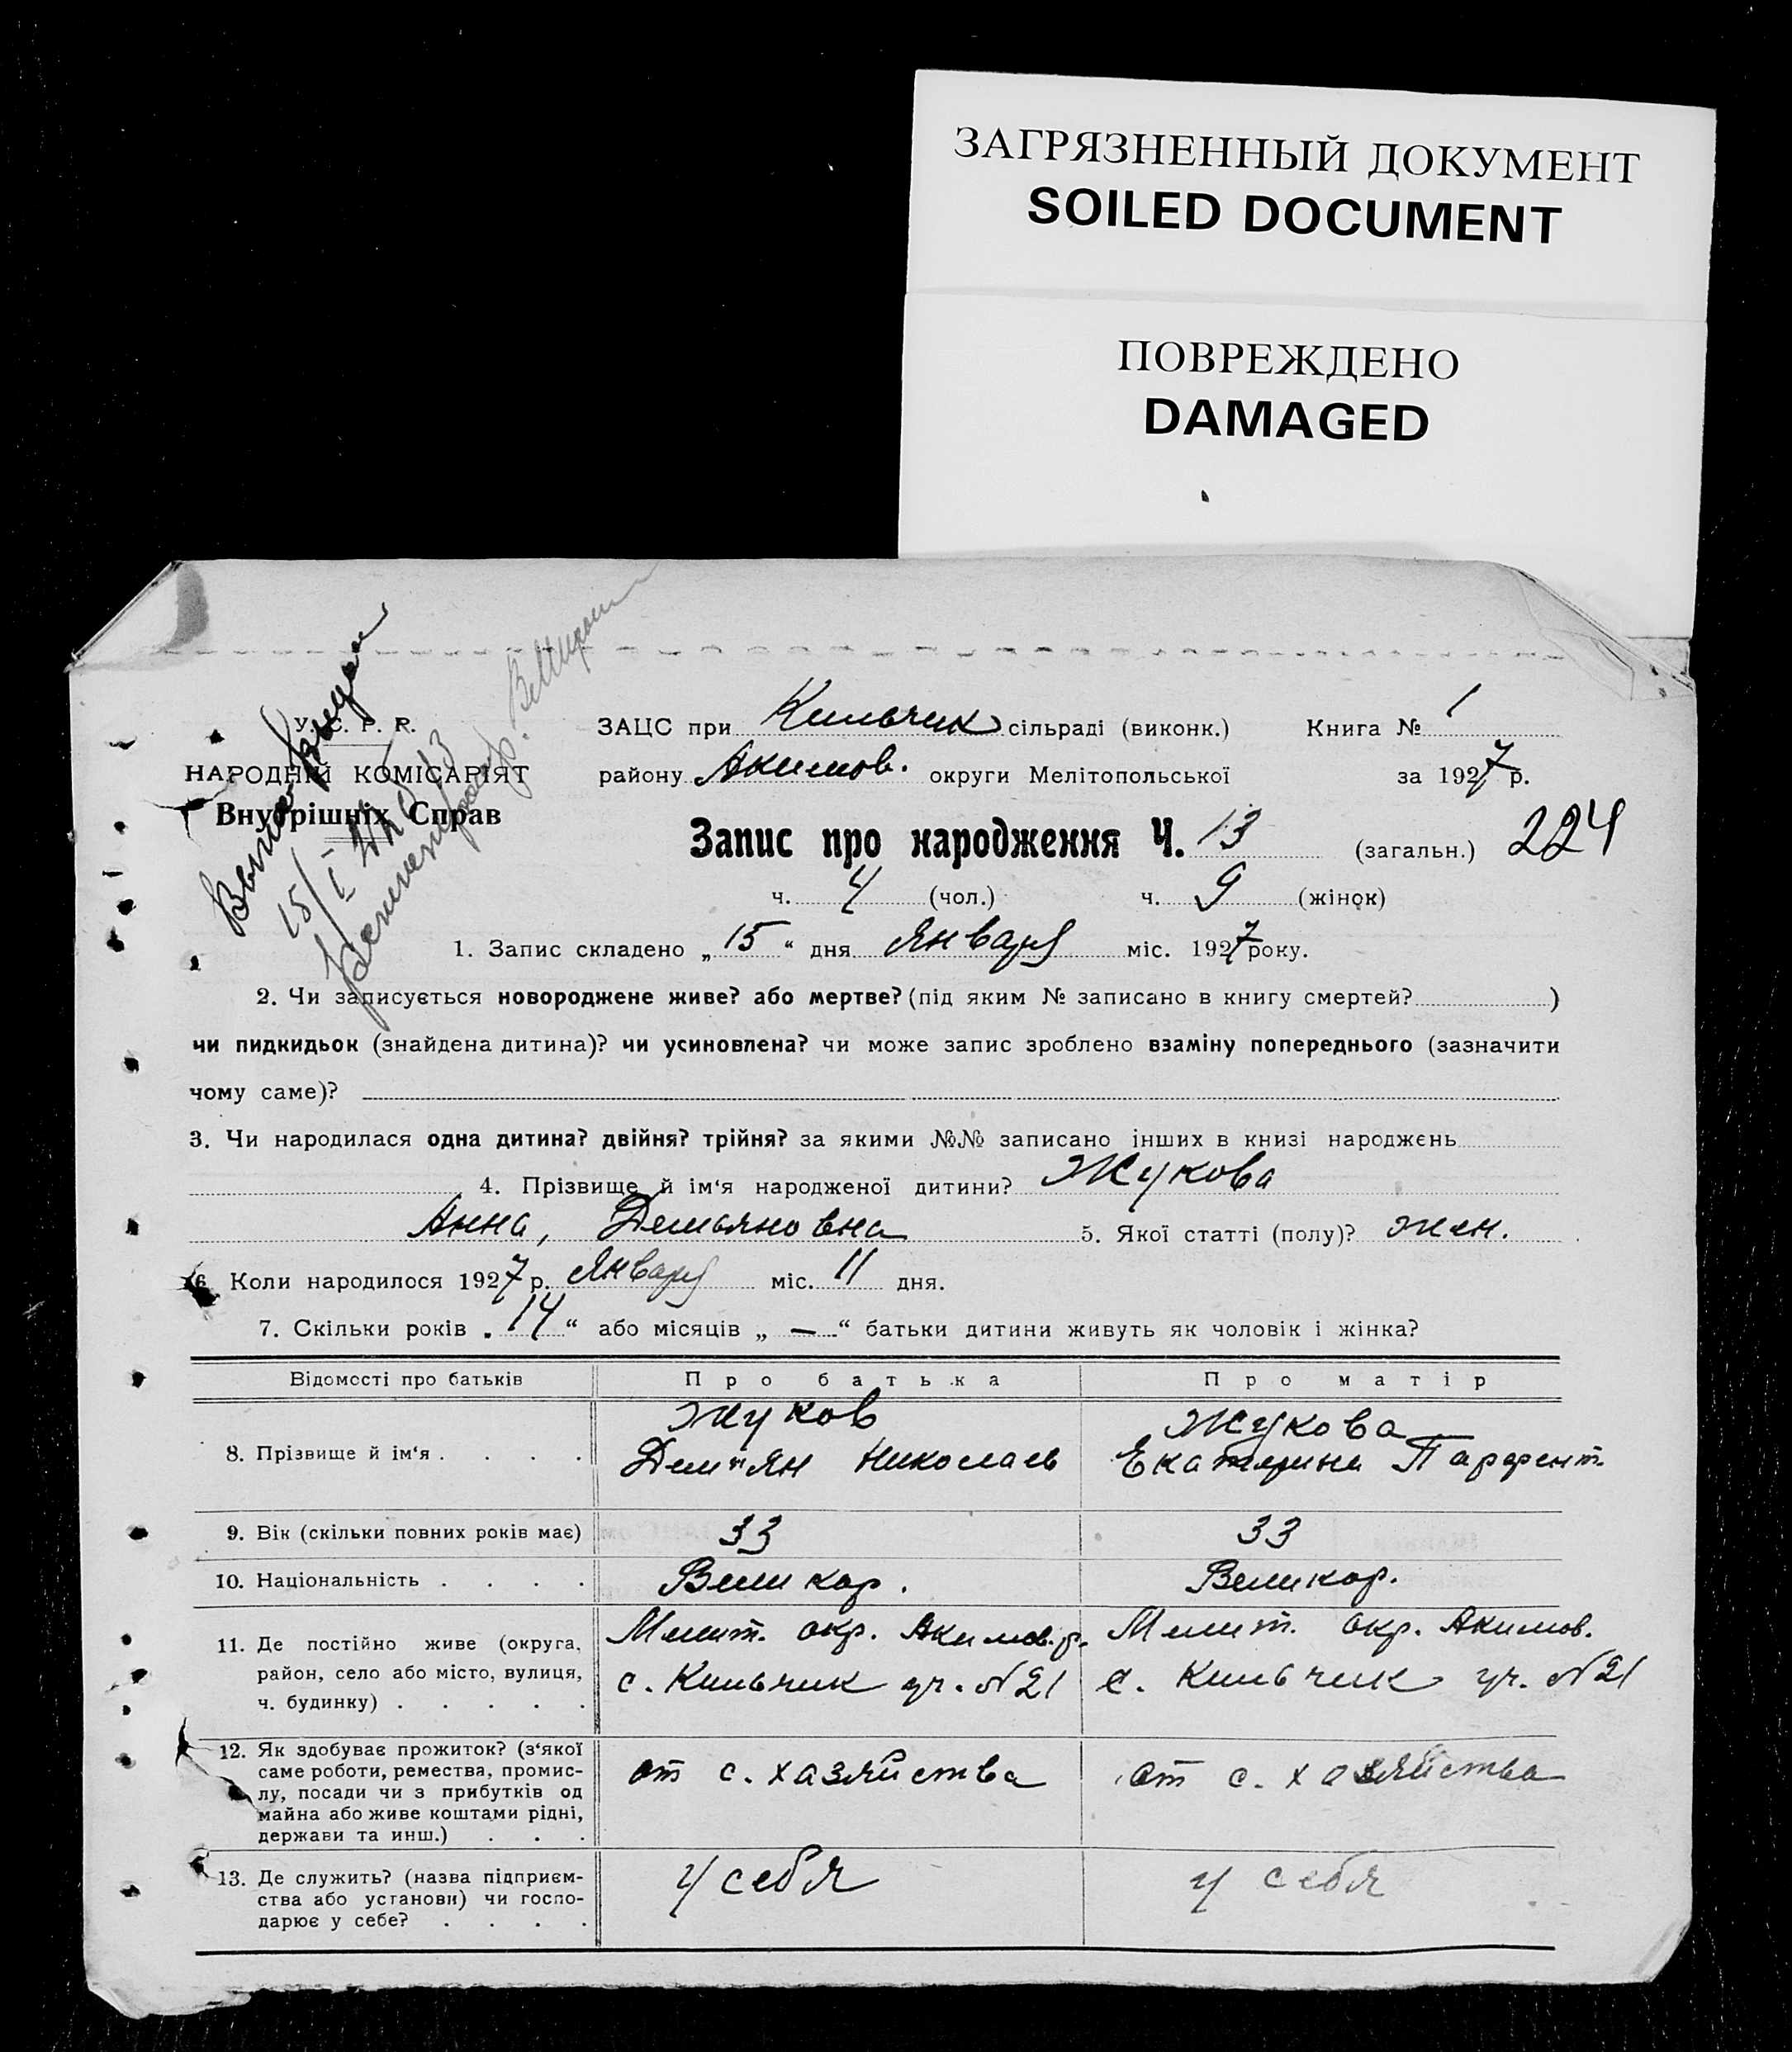 ЗАГРЯЗНЕННЫЙ ДОКУМЕНТ
SOILED DOCUMENT
ПОВРЕЖДЕНО
DAMAGED
У. С. Р. Р.
НАРОДНІЙ КОМІСАРІЯТ
Внутрішніх Справ
15/I
ЗАЦС при Кильчик сільраді (виконк.) Книга № 1
району Акимов. округи Мелітопольської за 1927 р.
Запис про народження Ч. 13 (загальн.) 224
ч. 4 (чол.) ч. 9 (жінок)
1. Запис складено „15“ дня Января міс. 1927 року.
2. Чи записується новороджене живе? або мертве? (під яким № записано в книгу смертей? )
чи пидкидьок (знайдена дитина)? чи усиновлена? чи може запис зроблено взаміну попереднього (зазначити
чому саме)?
3. Чи народилася одна дитина? двійня? трійня? за якими №№ записано інших в книзі народжень
4. Прізвище й ім‘я народженої дитини? Жукова
Анна, Демьяновна 5. Якої статті (полу)? жен.
6. Коли народилося 1927 р. Января міс. 11 дня.
7. Скільки років „14“ або місяців „ — “ батьки дитини живуть як чоловік і жінка?
Відомості про батьків Про батька Про матір
8. Прізвище й ім‘я . . . . Жуков Жукова
Дем"ян Николаев Екатерина Парфент.
9. Вік (скільки повних років має) 33 33
10. Національність . . . . Великор. Великор.
11. Де постійно живе (округа, Мелит. окр. Акимов. р. Мелит. окр. Акимов.
район, село або місто, вулиця, с. Кильчик уч. №21 с. Кильчик уч. №21
ч. будинку) . . . . .
12. Як здобуває прожиток? (з‘якої
саме роботи, ремества, промис- от с. хазяйства от с. хазяйства
лу, посади чи з прибутків од
майна або живе коштами рідні,
держави та инш.) . . .
13. Де служить? (назва підприєм- у себя у себя
ства або установи) чи госпо-
дарює у себе? . . . .